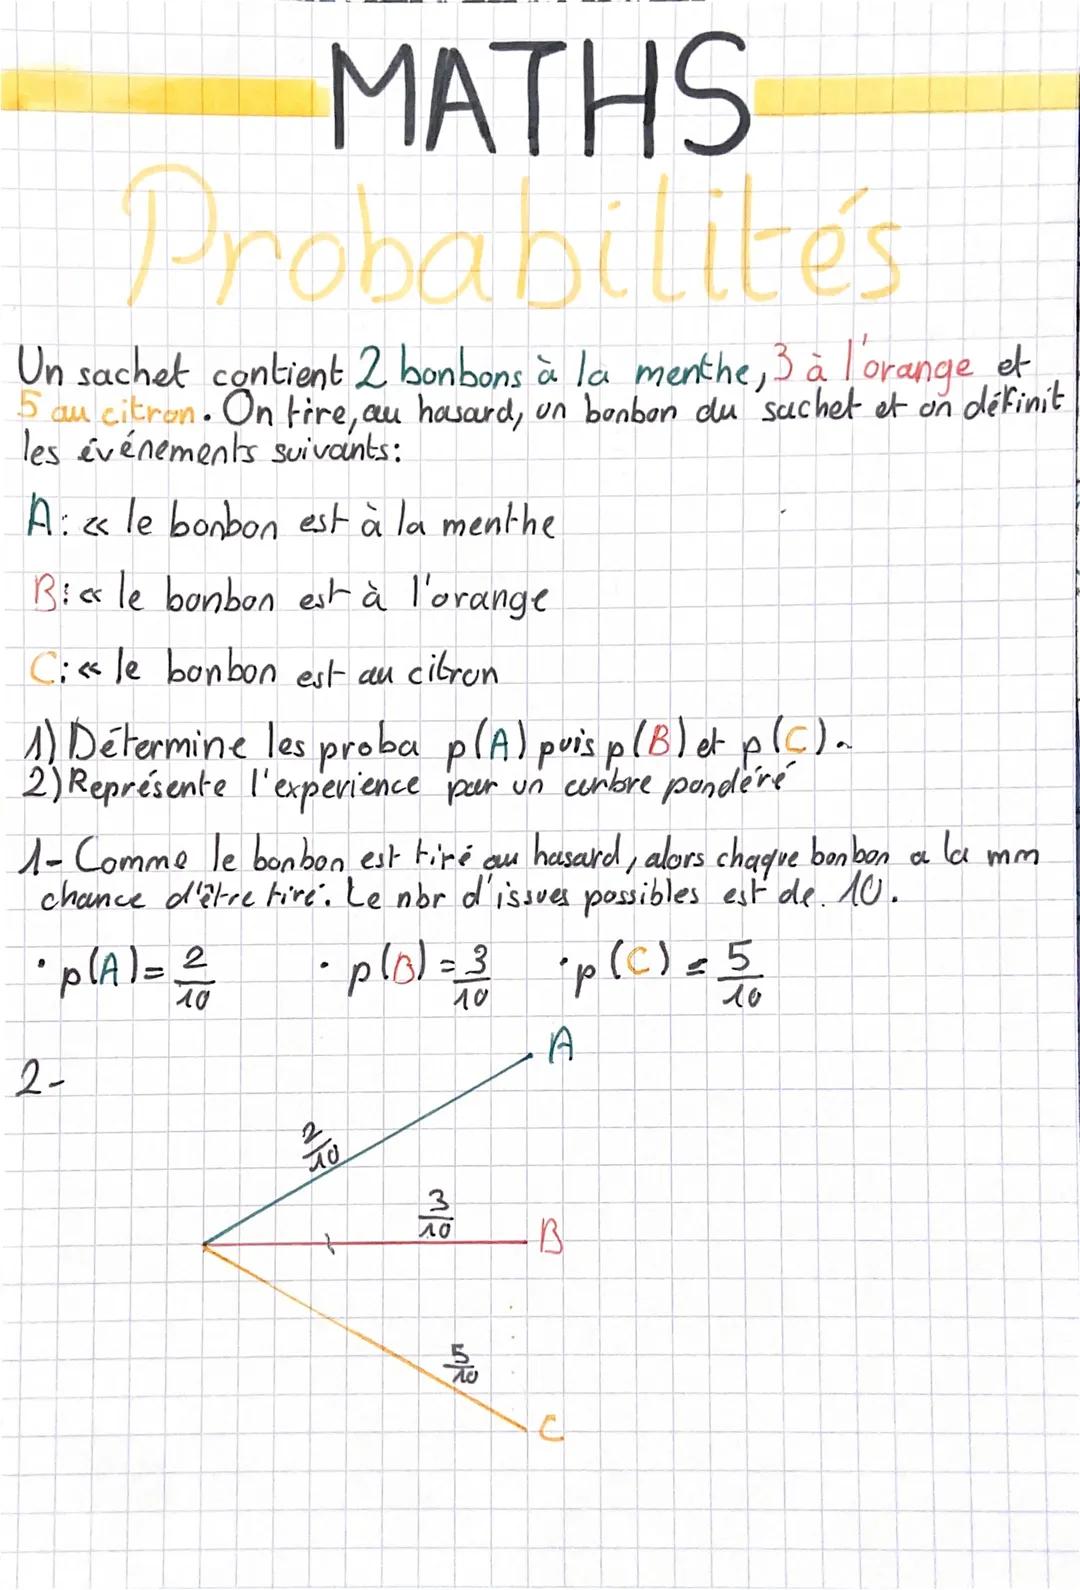 MATHS
Probabilités
Un sachet contient 2 bonbons à la menthe, 3 à l'orange et
5 au citron. On tire, au hasard, un bonbon du sachet et on définit
les événements suivants:
A: « le bonbon est à la menthe
B: « le bonbon est à l'orange
C: « le bonbon est au citron
1) Détermine les proba p(A) puis p(B) et p(C).
2) Représente l'experience par un arbre pondéré
1- Comme le bonbon est tiré au hasard, alors chaque bonbon a la mm
chance d'être tiré. Le nbr d'issues possibles est de. 10.
• p(A) = 2/10 • p(B) = 3/10 • p(C) = 5/10
2-
A
2/10
3/10
B
5/10
C